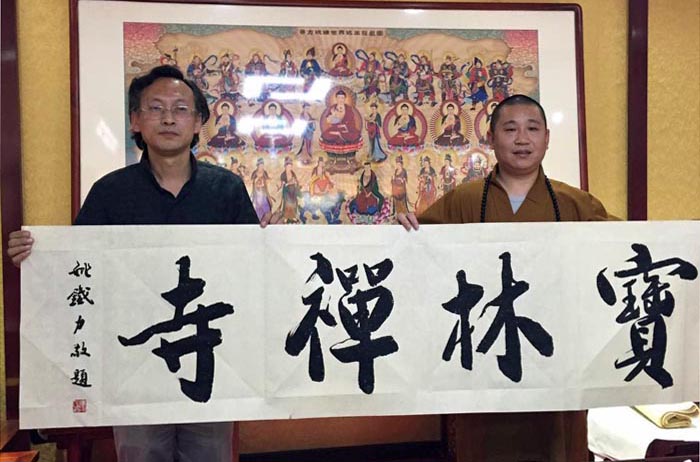 寶林禪寺
姚鐵力敬題